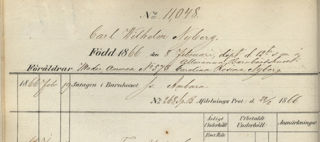 No. 11048.
Carl Wilhelm Nyberg.
Född 1866 den 5 Februari, döpt d. 12 s. m. i
Allmänna Barnbördshuset
Föräldrar: Moder Anna No 570 Carolina Nyberg
1866 Feb 19 Intagen i Barnhuset
No 268 Afdelnings Prot. d. 1866
Årligt Underhåll
Utbetaldt Underhåll
Anmärkningar